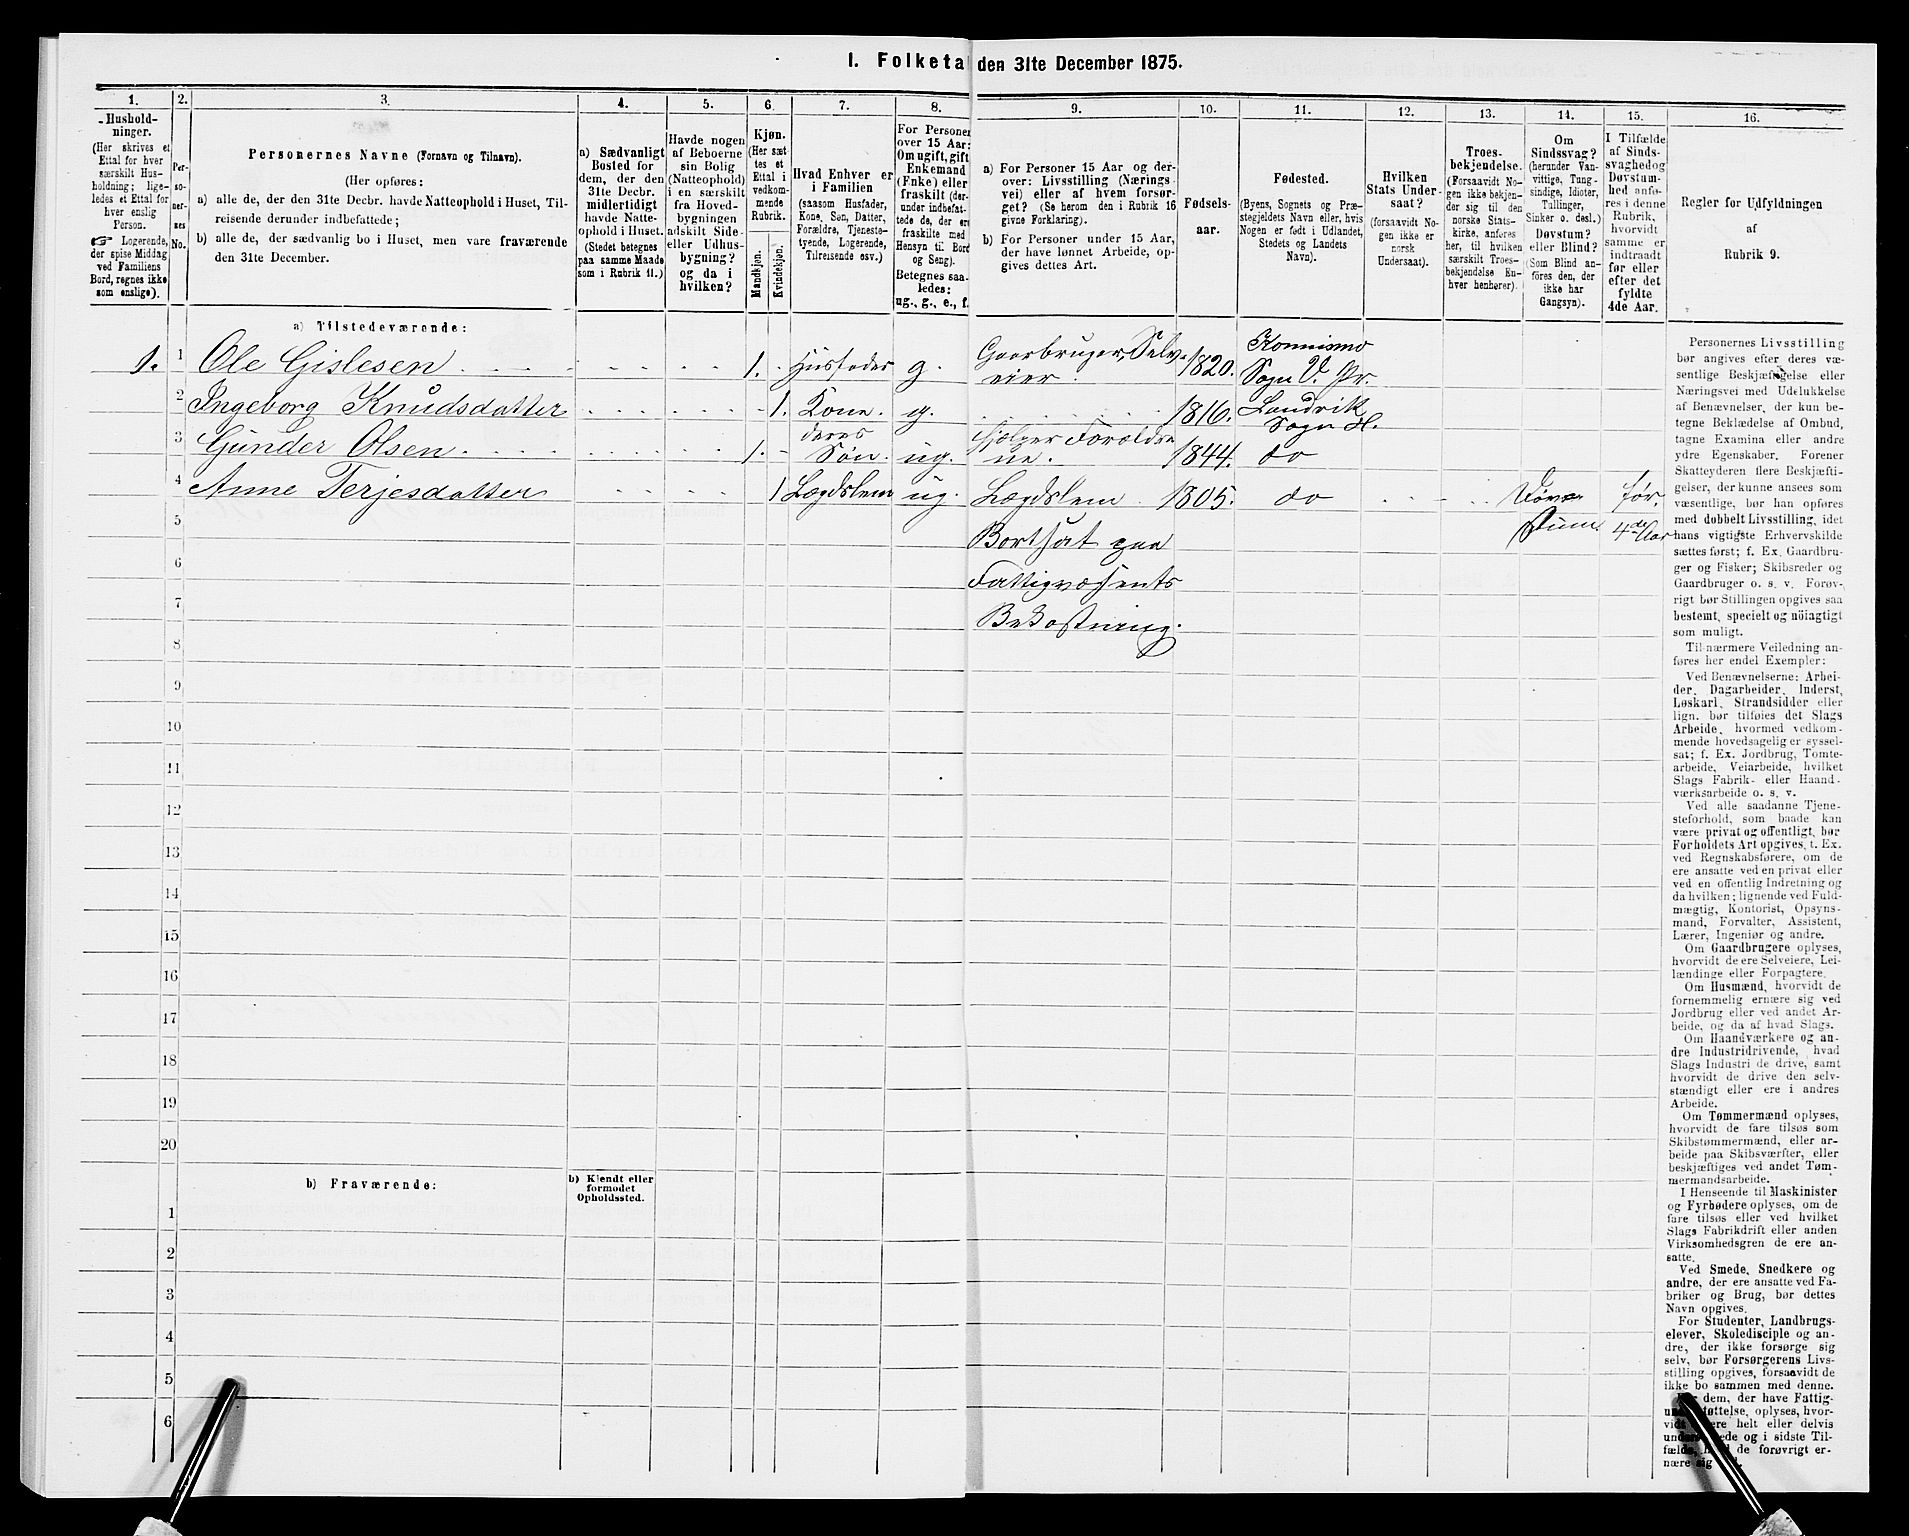 1. Folketa den 31te December 1875.
1.
Hushold-
ninger.
(Her skrives et
Ettal for hver
særskilt Hus-
holdning; lige-
ledes et Ettal for
hver enslig
Person.
Logerende,
der spise Middag
ved Familiens
Bord, regnes ikke
som enslige).
2.
Per-
so-
ner-
nes
No.
3.
Personernes Navne (Fornavn og Tilnavn).
(Her opføres:
a) alle de, der den 31te Decbr. havde Natteophold i Huset, Til-
reisende derunder indbefattede;
b) alle de, der sædvanlig bo i Huset, men vare fraværende
den 31te December.
4.
a) Sædvanligt
Bosted for
dem, der den
31te Decbr.
midlertidigt
havde Natte-
ophold i Huset.
(Stedet betegnes
paa samme Maade
som i Rubrik 11.)
5.
Havde nogen
af Beboerne
sin Bolig
(Natteophold)
i en særskilt
fra Hoved-
bygningen
adskilt Side-
eller Udhus-
bygning?
og da i
hvilken?
6.
Kjøn.
(Her sæt-
tes et
Ettal i
vedkom-
mende
Rubrik.
Mandkjøn.
Kvindekjøn.
7.
Hvad Enhver er
i Familien
(saasom Husfader,
Kone, Søn, Datter,
Forældre, Tjeneste-
tyende, Logerende,
Tilreisende osv.)
8.
For Personer
over 15 Aar:
Om ugift, gift
Enkemand
(Enke) eller
fraskilt (der-
under indbefat-
tede de, der er
fraskilte med
Hensyn til Bord
og Seng).
Betegnes saa-
ledes:
ug., g., e., f.
9.
a) For Personer 15 Aar og der-
over: Livsstilling (Nærings-
vei) eller af hvem forsør-
get? (Se herom den i Rubrik 16
givne Forklaring).
b) For Personer under 15 Aar,
der have lønnet Arbeide, op-
gives dettes Art.
10.
Fødsels-
aar.
11.
Fødested.
(Byens, Sognets og Præ-
stegjeldets Navn eller, hvis
Nogen er født i Udlandet,
Stedets og Landets
Navn).
12.
Hvilken
Stats Under-
saat?
(forsaavidt No-
gen ikke er
norsk
Undersaat).
13.
Troes-
bekjendelse.
(Forsaavidt No-
gen ikke bekjen-
der sig til den
norske Stats-
kirke, anføres
her, til hvilken
særskilt Troes-
bekjendelse En-
hver henhører).
14.
Om
Sindssvag?
(herunder Van-
vittige, Tung-
sindige, Idioter,
Tullinger,
Sinker o. desl.)
Døvstum?
eller Blind?
(Som Blind an-
føres den, der
ikke har
Gangsyn).
15.
I Tilfælde
af Sinds-
svaghed og
Døvstum-
hed anfø-
res i denne
Rubrik,
hvorvidt
samme er
indtraadt
før eller
efter det
fyldte
4de Aar.
16.
Regler for Udfyldningen
af
Rubrik 9.
a) Tilstedeværende:
1. 1 Ole Gislesen 1. Husfader g. Gaardbruger, Selv-
eier. 1820. Konnismo
Sogn V. Pr.
2 Ingeborg Knudsdatter 1. Kone. g. 1816. Landvik
Sogn H.
3 Gunder Olsen 1. deres
Søn. ug. hjelper Foreldre
ne. 1844. do
4 Anne Terjesdatter 1 Lægdslem ug. Lægdslem 1805. do Døv- før.
Stum. 4de Aar
5 Bortsat paa
6 Fattigvæsents
7 Bekostning.
8
9
10
11
12
13
14
15
16
17
18
19
20
b) Fraværende:
b) Kjendt eller
formodet
Opholdssted.
1
2
3
4
5
6
Personernes Livsstilling
bør angives efter deres væ-
sentlige Beskjæftigelse eller
Næringsvei med Udelukkelse
af Benævnelser, der kun be-
tegne Beklædelse af Ombud,
tagne Examina eller andre
ydre Egenskaber. Forener
Skatteyderen flere Beskjæfti-
gelser, der kunne ansees som
væsentlige, bør han opføres
med dobbelt Livsstilling, idet
hans vigtigste Erhvervskilde
sættes først; f. Ex. Gaardbru-
ger og Fisker; Skibsreder og
Gaardbruger o. s. v. Forøv-
rigt bør Stillingen opgives saa
bestemt, specielt og nöiagtigt
som muligt.
Til nærmere Veiledning an-
føres her endel Exempler:
Ved Benævnelserne: Arbei-
der, Dagarbeider, Inderst,
Løskarl, Strandsidder eller
lign. bør tilføies det Slags
Arbeide, hvormed vedkom-
mende hovedsagelig er syssel-
sat; f. Ex. Jordbrug, Tomte-
arbeide, Veiarbeide, hvilket
Slags Fabrik- eller Haand-
værksarbeide o. s. v.
Ved alle saadanne Tjene-
steforhold, som baade kan
være privat og offentligt, bør
Forholdets Art opgives, t. Ex.
ved Regnskabsførere, om de
ere ansatte ved en privat eller
ved en offentlig Indretning og
da hvilken; lignende ved Fuld-
mægtig, Kontorist, Opsyns-
mand, Forvalter, Assistent,
Lærer, Ingeniør og andre.
Om Gaardbrugere oplyses,
hvorvidt de ere Selveiere, Lei-
lændinge eller Forpagtere.
Om Husmænd, hvorvidt de
fornemmelig ernære sig ved
Jordbrug eller ved andet Ar-
beide, og da af hvad Slags.
Om Haandværkere og an-
dre Industridrivende, hvad
Slags Industri de drive, samt
hvorvidt de drive den selv-
stændigt eller ere i andres
Arbeide.
Om Tømmermænd oplyses,
hvorvidt de fare tilsøs som
Skibstømmermænd, eller ar-
beide paa Skibsværfter, eller
beskjæftiges ved andet Tøm-
mermandsarbeide.
I Henseende til Maskinister
og Fyrbødere oplyses, om de
fare tilsøs eller ved hvilket
Slags Fabrikdrift eller anden
Virksomhedsgren de ere an-
satte.
Ved Smede, Snedkere og
andre, der ere ansatte ved Fa-
briker og Brug, bør dettes
Navn opgives.
For Studenter, Landbrugs-
elever, Skoledisciple og an-
dre, der ikke forsørge sig
selv, bør Forsørgerens Livs-
stilling opgives, forsaavidt de
ikke bo sammen med denne.
dem, der have Fattig-
støttelse, oplyses, hvor-
vidt ere helt eller delvis
og i sidste Til-
fælde, de forøvrigt er-
nære sig